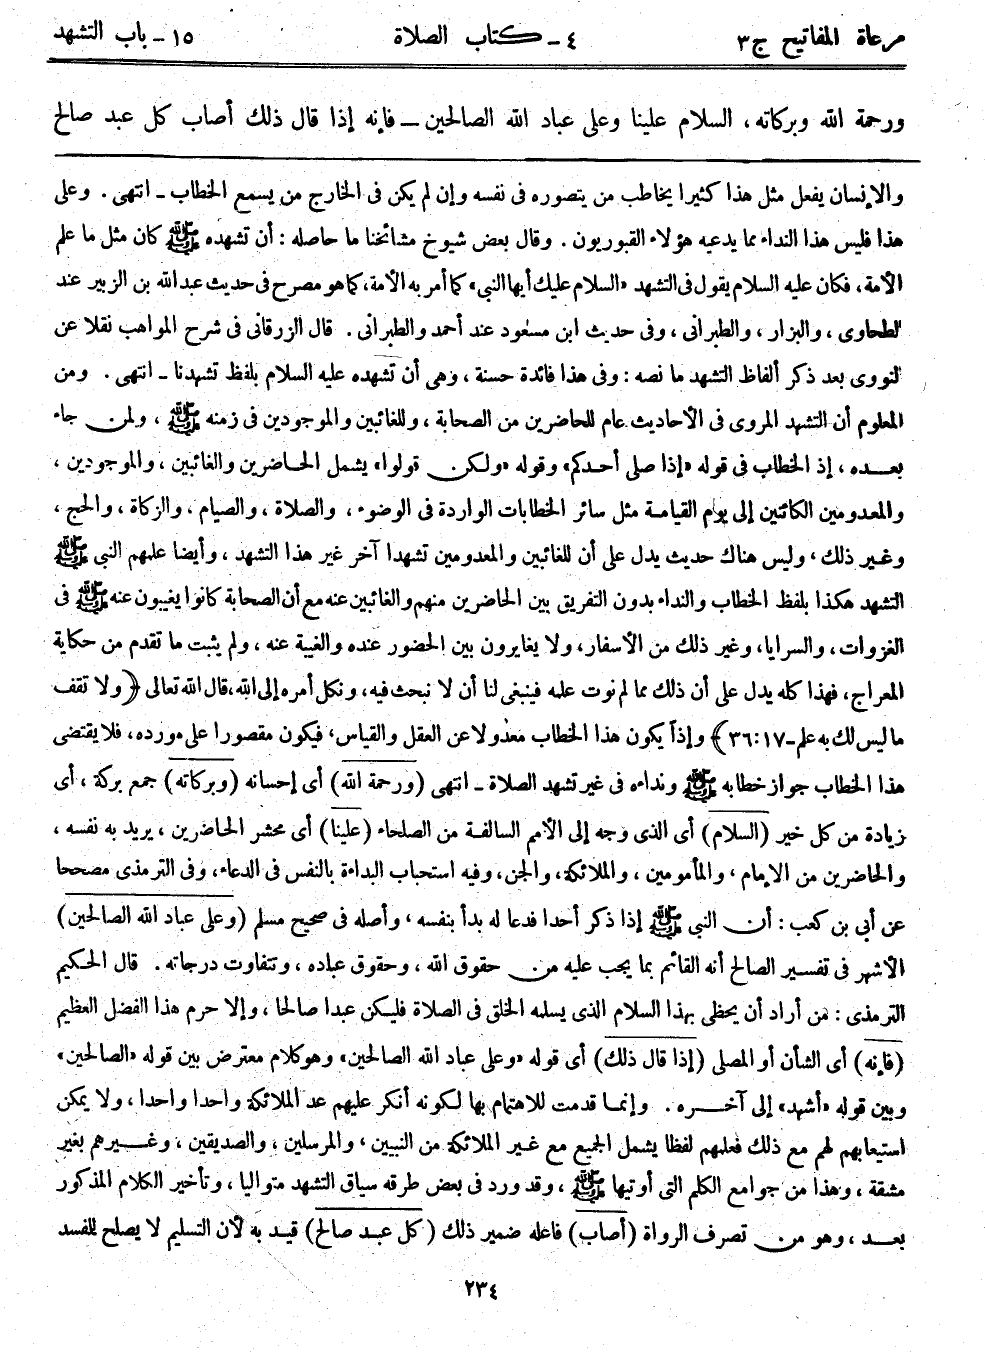 مرعاة المفاتيح ج ٣
٤ - كتاب الصلاة
١٥ - باب التشهد
ورحمة الله وبركاته، السلام علينا وعلى عباد الله الصالحين – فإنه إذا قال ذلك أصاب كل عبد صالح
والإنسان يفعل مثل هذا كثيرا يخاطب من يتصوره فى نفسه وإن لم يكن فى الخارج من يسمع الخطاب - انتهى . وعلى
هذا فليس هذا النداء مما يدعيه هؤلاء القبوريون . وقال بعض شيوخ مشائخنا ما حاصله : أن تشهده ﷺ كان مثل ما علم
الأمة، فكان عليه السلام يقول فى التشهد «السلام عليك أيها النبى» كما أمر به الأمة، كما هو مصرح فى حديث عبد الله بن الزبير عند
الطحاوى ، والبزار ، والطبرانى ، وفى حديث ابن مسعود عند أحمد والطبرانى . قال الزرقانى فى شرح المواهب نقلا عن
النووى بعد ذكر ألفاظ التشهد ما نصه : وفى هذا فائدة حسنة ، وهى أن تشهده عليه السلام بلفظ تشهدنا - انتهى . ومن
المعلوم أن التشهد المروى فى الأحاديث عام للحاضرين من الصحابة ، وللغائبين والموجودين فى زمنه ﷺ ، ولمن جاء
بعده ، إذ الخطاب فى قوله «إذا صلى أحدكم» وقوله «ولكن قولوا» يشمل الحاضرين والغائبين ، والموجودين ،
والمعدومين الكائنين إلى يوم القيامة مثل سائر الخطابات الواردة فى الوضوء ، والصلاة ، والصيام ، والزكاة ، والحج ،
وغير ذلك ، وليس هناك حديث يدل على أن للغائبين والمعدومين تشهدا آخر غير هذا التشهد ، وأيضا علمهم النبى ﷺ
التشهد هكذا بلفظ الخطاب والنداء بدون التفريق بين الحاضرين منهم والغائبين عنه مع أن الصحابة كانوا يغيبون عنه ﷺ فى
الغزوات ، والسرايا، وغير ذلك من الأسفار، ولا يغايرون بين الحضور عنده والغيبة عنه ، ولم يثبت ما تقدم من حكاية
المعراج، فهذا كله يدل على أن ذلك مما لم نوت علمه فينبغى لنا أن لا نبحث فيه، ونكل أمره إلى الله، قال الله تعالى ﴿ ولا تقف
ما ليس لك به علم - ١٧:٣٦﴾ وإذاً يكون هذا الخطاب معدولا عن العقل والقياس، فيكون مقصورا على مورده، فلا يقتضى
هذا الخطاب جواز خطابه ﷺ ونداءه فى غير تشهد الصلاة - انتهى (ورحمة الله) أى إحسانه (وبركاته) جمع بركة ، أى
زيادة من كل خير (السلام) أى الذى وجه إلى الأمم السالفة من الصلحاء (علينا) أى محشر الحاضرين ، يريد به نفسه ،
والحاضرين من الإمام ، والمأمومين ، والملائكة، والجن، وفيه استحباب البداءة بالنفس فى الدعاء، وفى الترمذى مصححا
عن أبي بن كعب : أن النبى ﷺ إذا ذكر أحدا فدعا له بدأ بنفسه ، وأصله فى صحيح مسلم (وعلى عباد الله الصالحين)
الأشهر فى تفسير الصالح أنه القائم بما يجب عليه من حقوق الله ، وحقوق عباده ، وتتفاوت درجاته . قال الحكيم
الترمذى : من أراد أن يحظى بهذا السلام الذى يسلمه الخلق فى الصلاة فليكن عبدا صالحا ، وإلا حرم هذا الفضل العظيم
(فإنه) أى الشأن أو المصلى (إذا قال ذلك) أى قوله «وعلى عباد الله الصالحين» وهو كلام معترض بين قوله «الصالحين»
وبين قوله «أشهد» إلى آخره . وإنما قدمت للاهتمام بها لكونه أنكر عليهم عد الملائكة واحدا واحدا ، ولا يمكن
استيعابهم لهم مع ذلك فعلمهم لفظا يشمل الجميع مع غير الملائكة من النبيين ، والمرسلين ، والصديقين ، وغيرهم بغير
مشقة ، وهذا من جوامع الكلم التى أوتيها ﷺ ، وقد ورد فى بعض طرقه سياق التشهد متواليا ، وتأخير الكلام المذكور
بعد ، وهو من تصرف الرواة (أصاب) فاعله ضمير ذلك (كل عبد صالح) قيد به لأن التسليم لا يصلح للفسد
٢٣٤